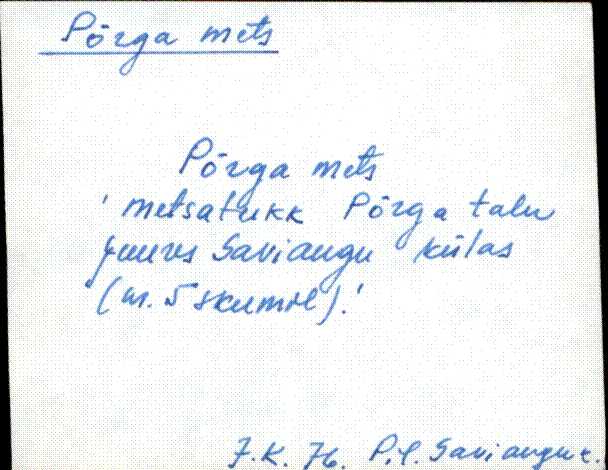 Põrga mets
Põrga mets
'metsatukk Põrga talu
juures Saviaugu külas
(nr. 5 skeemil).'
J.K. 76. P.-l. Saviaugu k.